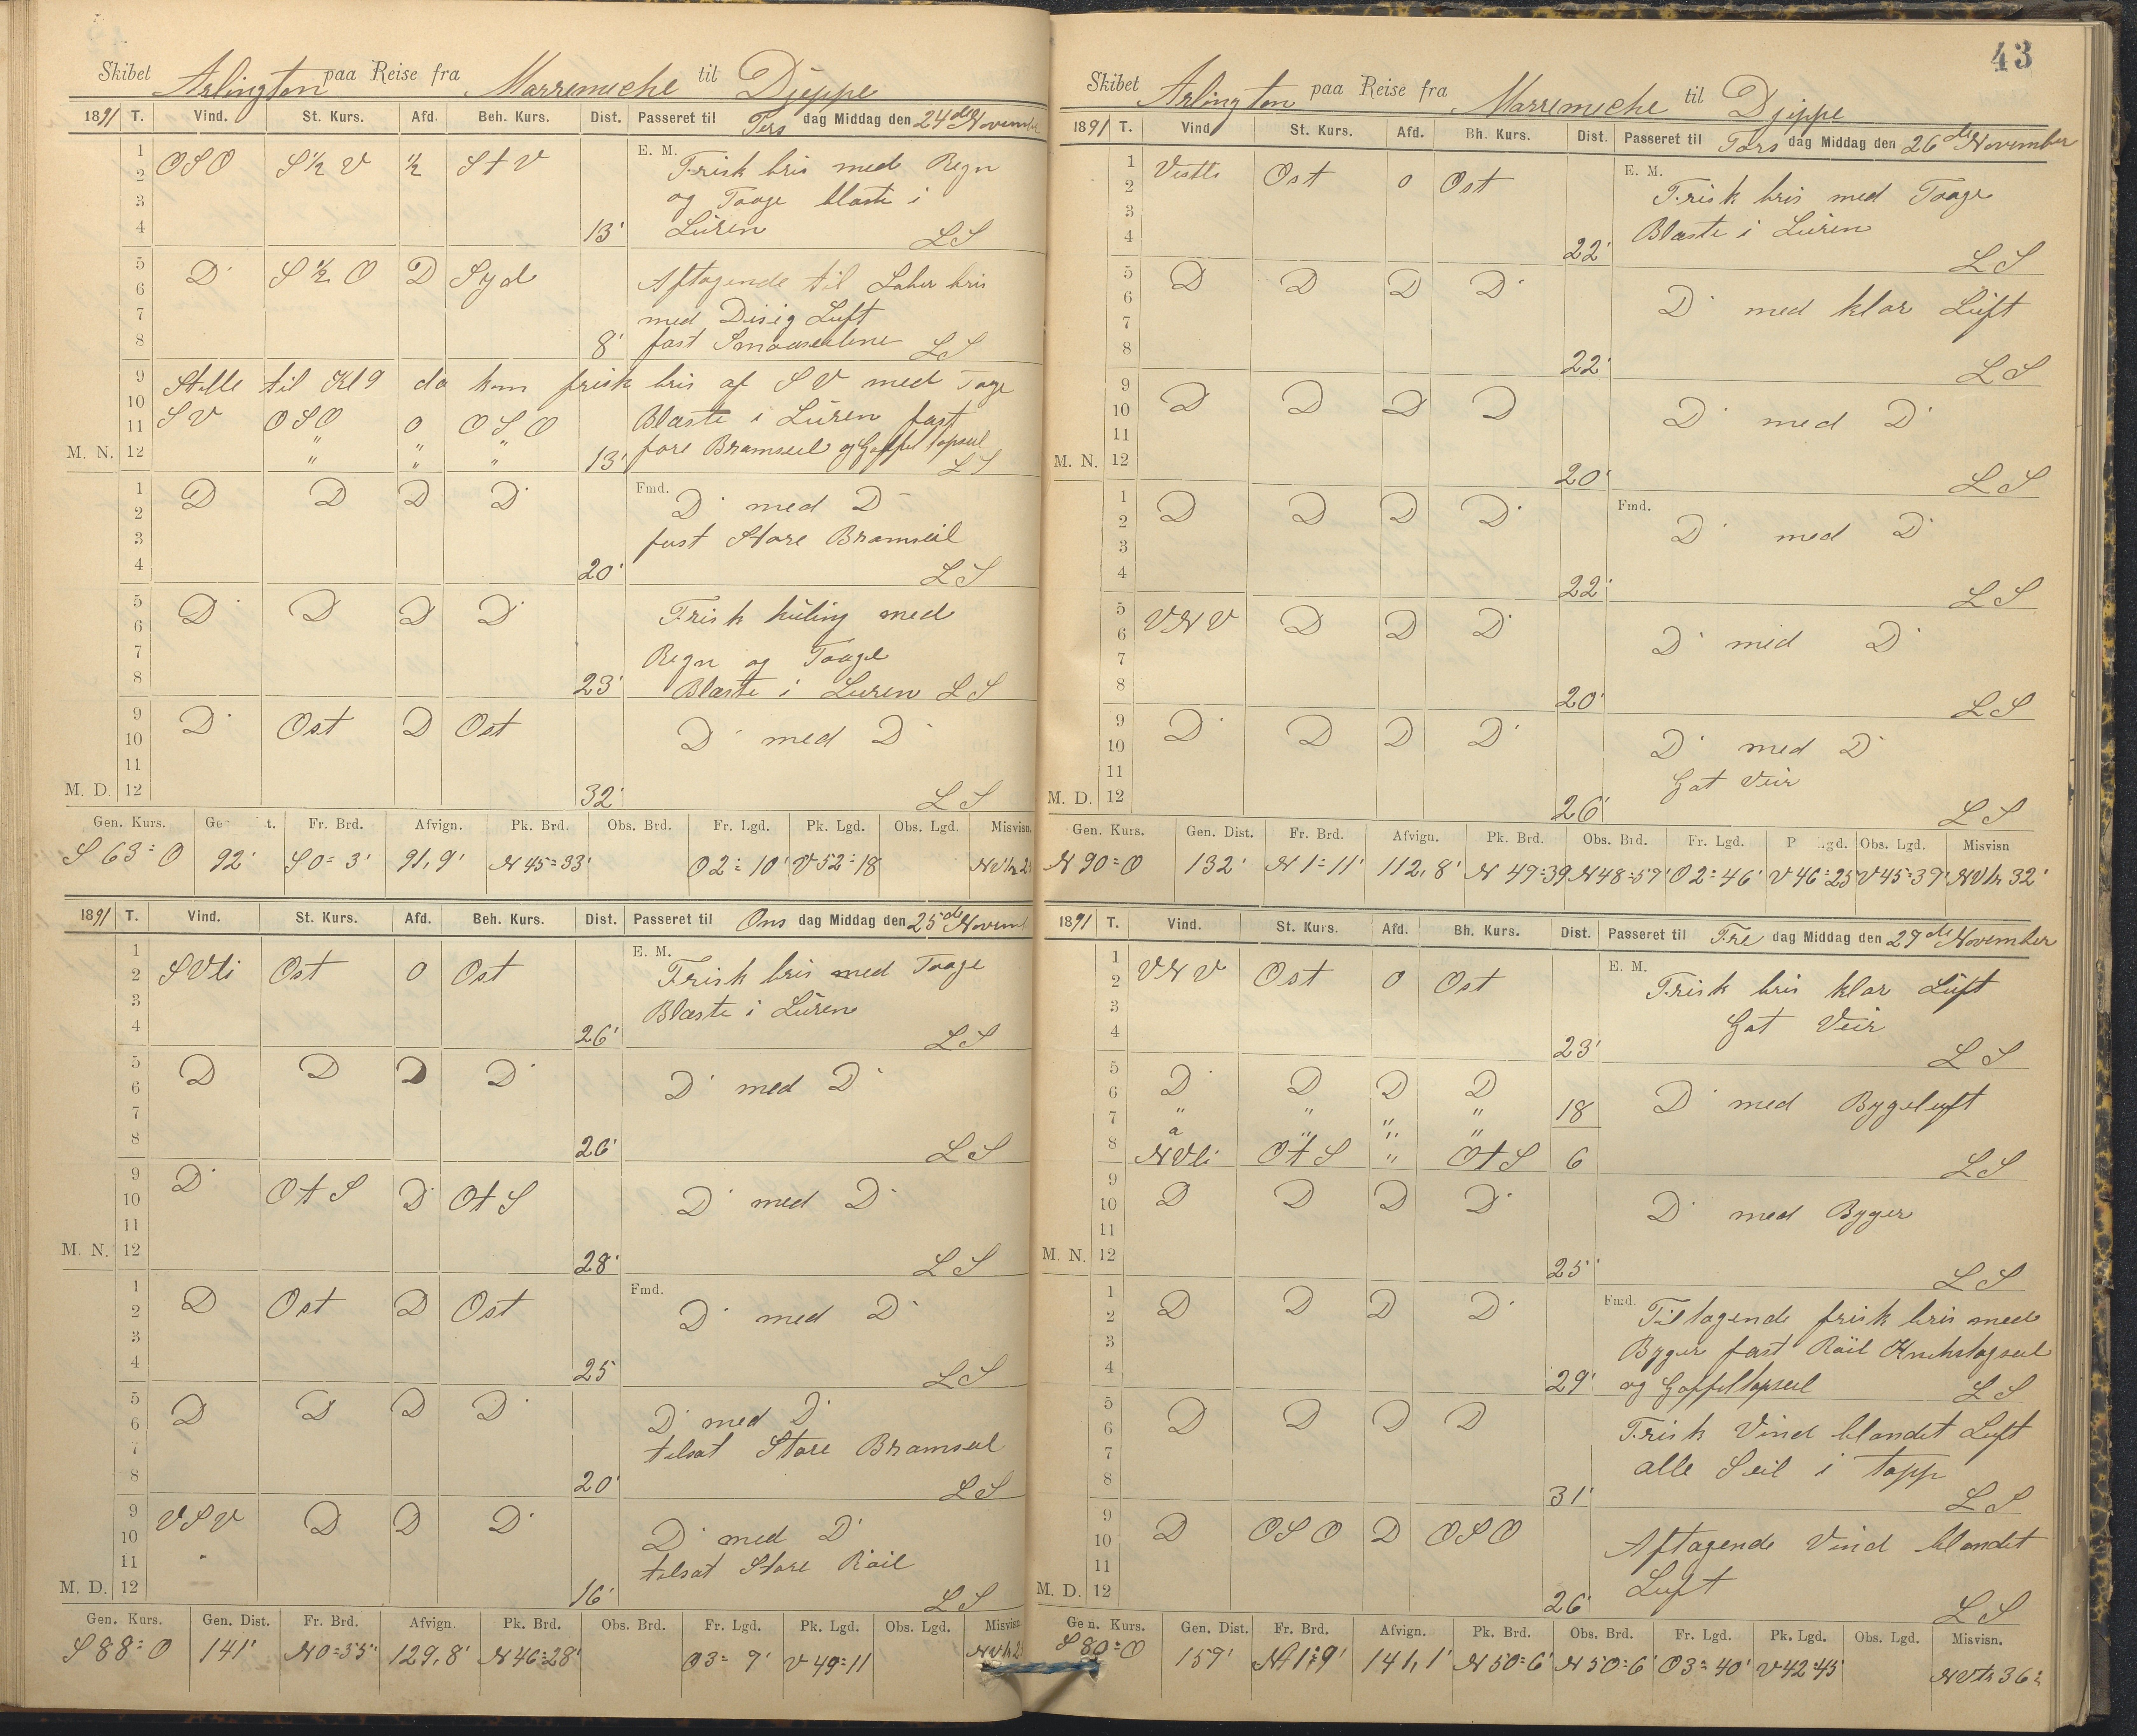 Skibet Arlington paa Reise fra Marremiche til Djeppe
1891 T. Vind. St. Kurs. Afd. Beh. Kurs. Dist. Passeret til Tirs dag Middag den 24de November
E. M.
1 2 3 4 OSO S½V ½ StV 13' Frisk bris med Regn
og Taage blaste i
Lüren LS
5 6 7 8 D S½O D Syd 8' Aftagende til Laber bris
med Disig Luft
fast Smaaseilene LS
9 Stille til Kl 9 da kom frisk bris af SV med Tage
10 11 SV OSO 0 OSO Blaste i Lüren fast
M. N. 12 " " " 13' fore Bramseil og Gaffeltopseil
LS
Fmd.
1 2 3 4 D D D D 20' D med D
fast Store Bramseil
LS
5 6 7 8 D D D D 23' Frisk küling med
Regn og Taage
Blaste i Luren LS
9 10 11 D Ost D Ost D med D
M. D. 12 32' LS
Gen. Kurs. Ge t. Fr. Brd. Afvign. Pk. Brd. Obs. Brd. Fr. Lgd. Pk. Lgd. Obs. Lgd. Misvisn.
S 63° O 92' S 0=3' 91,9' N 45=33' O 2=10' V 52=18
1891 T. Vind. St. Kurs. Afd. Beh. Kurs. Dist. Passeret til Ons dag Middag den 25de Novem
E. M.
1 2 3 4 SVli Ost 0 Ost 26' Frisk bris med Taage
Blaste i Lüren
LS
5 6 7 8 D D D D 26' D med D
LS
9 10 11 D OtS D OtS D med D
M. N. 12 28' LS
Fmd.
1 2 3 4 D Ost D Ost 25 D med D
LS
5 6 7 8 D D D D 20' D med D
tilsat Store Bramseil
LS
9 10 11 VSV D D D D med D
tilsat Store Röil
M. D. 12 16' LS
Gen. Kurs. Gen. Dist. Fr. Brd. Afvign. Pk. Brd. Obs. Brd. Fr. Lgd. Pk. Lgd. Obs. Lgd. Misvisn.
S 88° O 141' N 0=55' 129,8' N 46=28' O 3=9' V 49=11
43
Skibet Arlington paa Reise fra Marremiche til Djeppe
1891 T. Vind St. Kurs. Afd. Bh. Kurs. Dist. Passeret til Tors dag Middag den 26de November
E. M.
1 2 3 4 Vestli Ost 0 Ost 22' Frisk bris med Taage
Blaste i Lüren
LS
5 6 7 8 D D D D 22' D med klar Lüft
LS
9 10 11 D D D D D med D
M. N. 12 20' LS
Fmd.
1 2 3 4 D D D D 22' D med D
LS
5 6 7 8 VNV D D D 20' D med D
LS
9 10 11 D D D D D med D
Got Veir
M. D. 12 26' LS
Gen. Kurs. Gen. Dist. Fr. Brd. Afvign. Pk. Brd. Obs. Brd. Fr. Lgd. P gd. Obs. Lgd. Misvisn
N 90° O 132' N 1=11' 112,8' N 47=39 N 48=57' O 2=46' V 46=25' V 45=37' NVlr 32'
1891 T. Vind. St. Kurs. Afd. Bh. Kurs. Dist. Passeret til Fre dag Middag den 27de November
E. M.
1 2 3 4 VNV Ost 0 Ost 23' Frisk bris klar Lüft
Got Veir
LS
5 6 D D D D D med Bygeluft
7 " " " " 18
8 NVli OtS " OtS 6 LS
9 10 11 D D D D D med Byger
M. N. 12 25' LS
Fmd.
1 2 3 4 D D D D 29' Tiltagende frisk bris med
Byger fast Röil
og Gaffeltopseil LS
5 6 7 8 D D D D 31' Frisk Vind blandet Luft
alle Seil i topp
LS
9 10 11 D OSO D OSO Aftagende Vind blandet
Luft
M. D. 12 26' LS
Gen. Kurs. Gen. Dist. Fr. Brd. Afvign. Pk. Brd. Obs. Brd. Fr. Lgd. Pk. Lgd. Obs. Lgd. Misvisn.
S 80° O 159' 141,1' N 50=6' N 50=6' O 3=40' V 42=45' NVlr 36